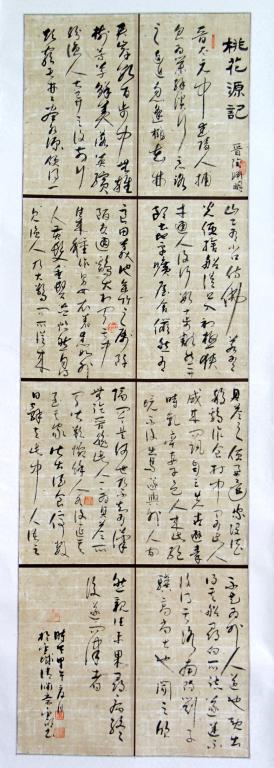 桃花源記
晉 陶淵明
晉太元中武陵人捕
魚為業緣溪行忘路
之遠近忽逢桃花林
夾岸數百步中無雜
樹芳草鮮美落英繽
紛漁人甚異之復前行
山山有小口彷彿若有
光便捨船從口入初極狹
才通人復行數十步豁然開
朗土地平曠屋舍儼然有
良田美池桑竹之屬阡
陌交通雞犬相聞其中
往來種作男女衣著悉如外
人黃髮垂髫並怡然自
見漁人乃大驚問所從來
具答之便要還家設酒
殺雞作食村中聞有此人
咸來問訊自云先世避秦
時亂率妻子邑人來此絕
境不復出焉遂與外人間
隔問今是何世乃不知有漢
無論魏晉此人一一為具言所
聞皆歎惋餘人各復
延至其家皆出酒食停數
日辭去此中人語云
不足為外人道也既出
得其船尋向所誌遂迷不
復得路南陽劉子
驥高尚士也聞之欣
然規往未果尋病終
後遂無問津者
時甲午